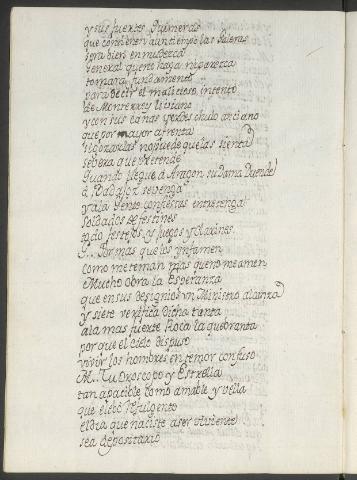 y sus fuertes Primeras
que contienen a un tiempo las
sera bien en nudezca
General que no haga
tomara fundamento
para decir el malicioso intento
de Monterrey liviano
y con sus canas verdes chulo anciano
que por mayor afrenta
no puede que las sienta
se vera que pretende
quando llegue a Aragon su Dama Duende
a Badajoz se venga
y a la Gente con fiestas entretenga
soldados de festines
todo festejos, y juegos y clarines.
Y.. Por mas que los ynfamen
como me teman mas que no me amen
Mucho obra la Esperanza
que en sus designios un Ministro alcanza
y si se verifica Dicha tanta
a la mas fuerte Roca la quebranta
por que el cielo dispuso
vivir los hombres en temor confuso
M.. Tu Oroscopo y Estrella
tan apacible como amable y vella
que el cebo refulgente
el dia que naciste a ser viviente
sea depositario